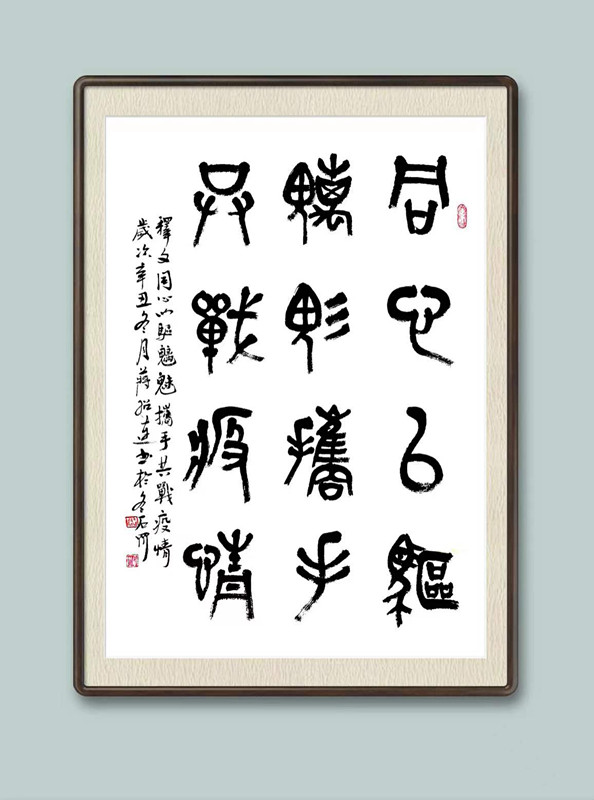 同心以驅
魑魅攜手
共戰疫情
釋文同心以驅魑魅攜手共戰疫情
歲次辛丑冬月蔣紹連書於冬石門